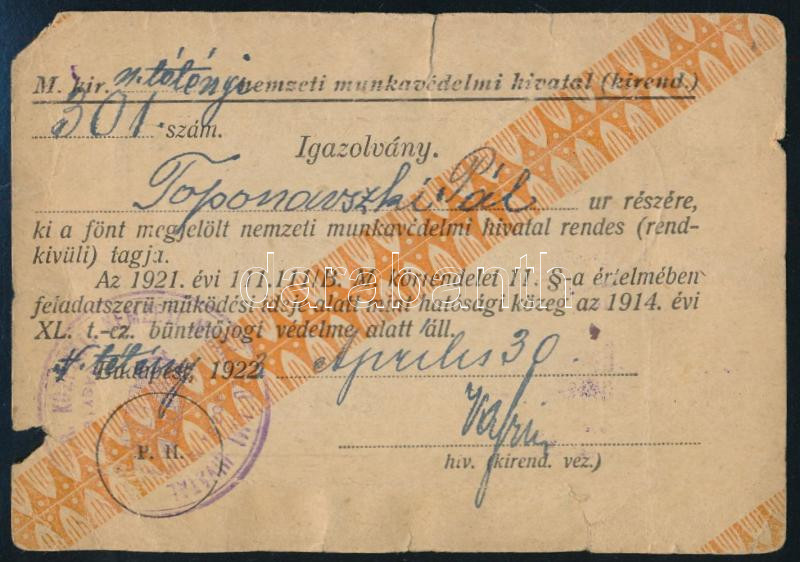 M. kir. n. tétényi nemzeti munkavédelmi hivatal (kirend.)
301. szám.
Igazolvány.
Toponavszki Pál ur részére,
ki a fönt megjelölt nemzeti munkavédelmi hivatal rendes (rend-
kivüli) tagja.
Az 1921. évi 111.111/B. M. körrendelet 11. §-a értelmében
feladatszerű működési ideje alatt mint hatósági közeg az 1914. évi
XL. t.-cz. büntetőjogi védelme alatt áll.
Budapest, 1922 április 30.
P. H.
hiv. (kirend. vez.)
HIVATAL
darabanth.com